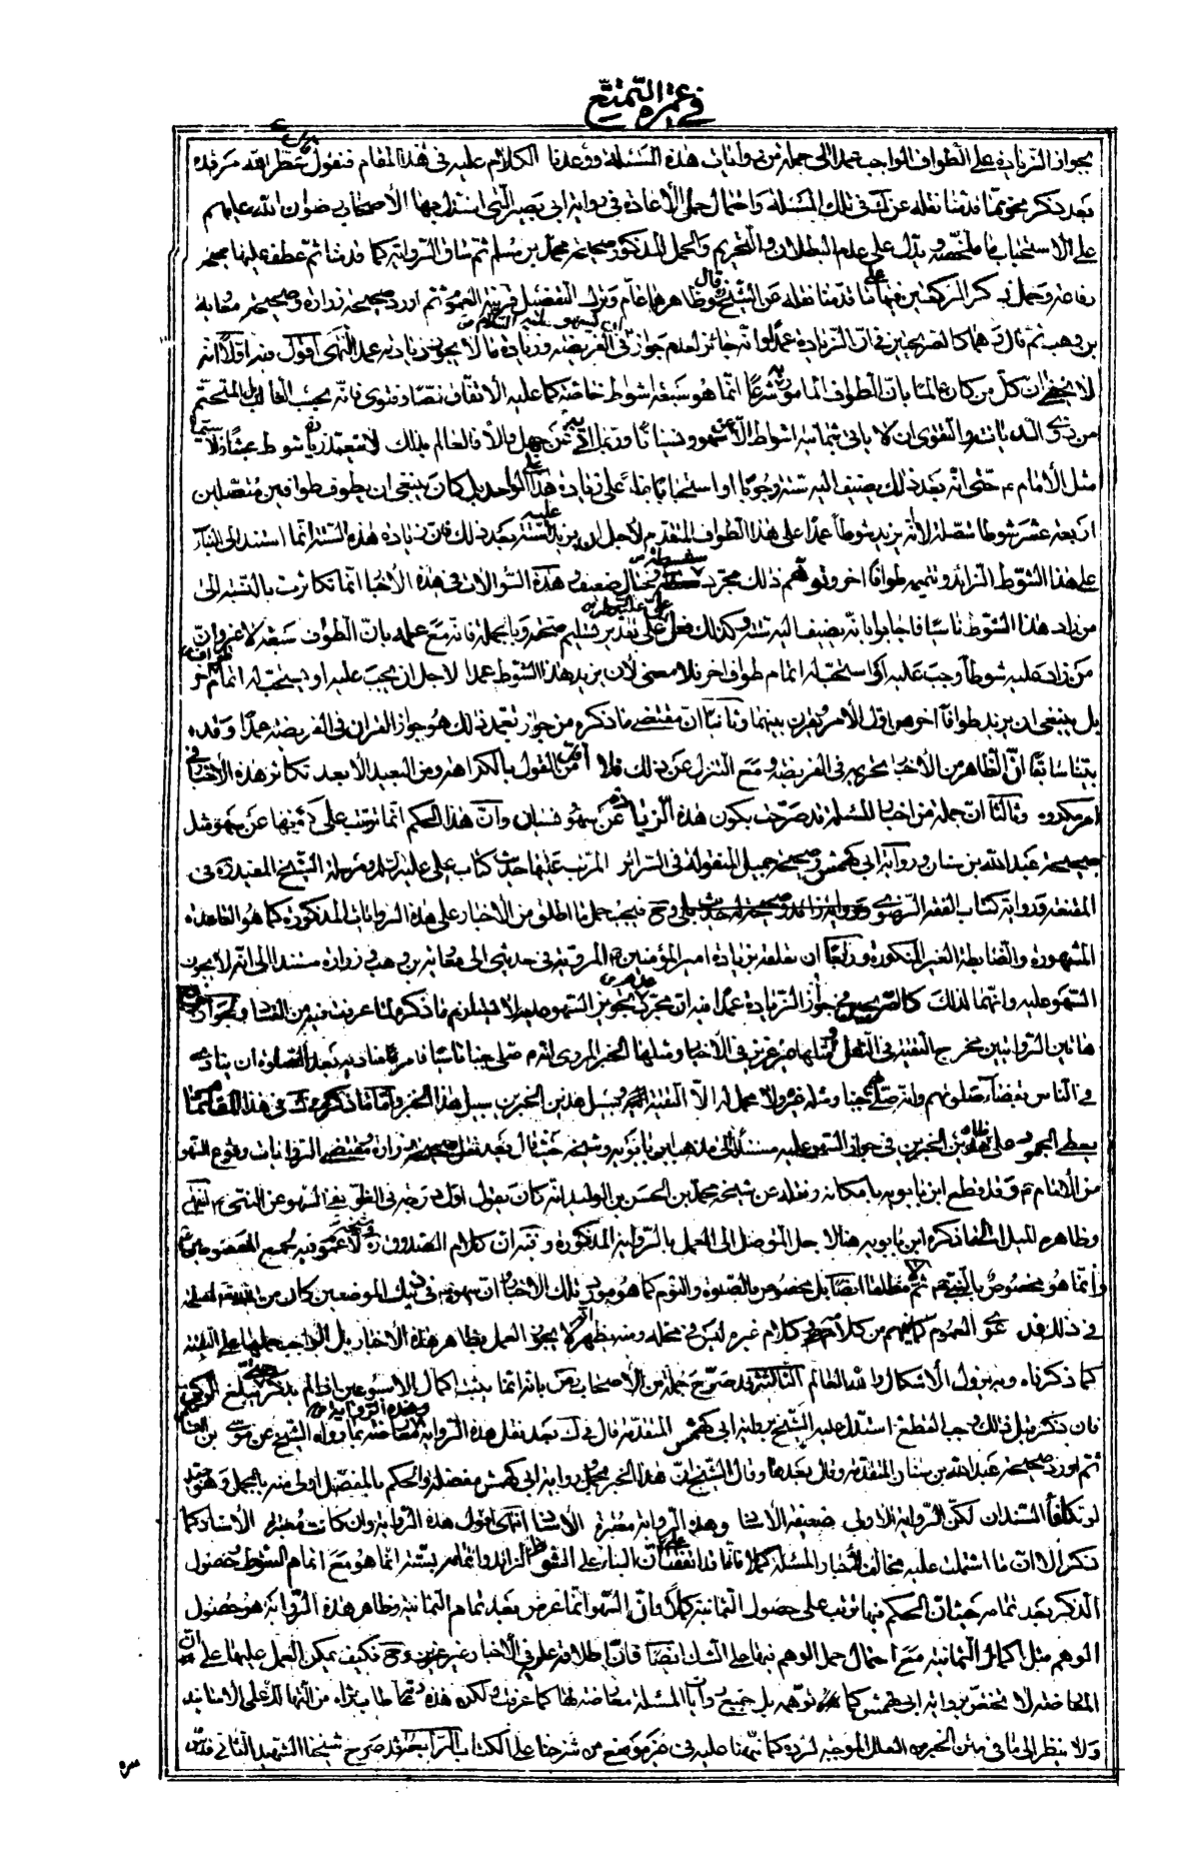 في عمرة التمتع
بجواز الزيادة على الطواف الواجب عمدا الى جملة من روايات هذه المسئلة ووعدنا الكلام عليه في هذا المقام فنقول عطر الله مرقده
بعد ذكر نحو ما قدمنا نقله عن في تلك المسئلة واحتمال حمل الأعادة في رواية ابي بصير التي استدل بها الأصحاب رضوان الله عليهم
على الاستحباب ما ملخصه ويدل على عدم البطلان والتحريم والحمل المذكور صحيحة محمد بن مسلم ثم ساق الرواية كما قدمنا ثم عطف عليها صحيحة
رفاعة وحمل ذكر الركعتين فيها على ما قدمنا نقله عن الشيخ وقال ظاهرها عام وترك التفصيل قرينة العموم ثم اورد صحيحة زرارة وصحيحة معوية
بن وهب ثم قال وهما كالصريحين في ان الزيادة عمدا وانه جائز لعدم جواز في الفريضة وزيادة ما لا يجوز زيادته عمدا انتهى اقول فيه اولا انه
لا يخفى ان كل من كان عالما بان الطواف المامور به شرعا انما هو سبعة اشواط خاصة كما عليه الاتفاق نصا وفتوى فانه بحسب الغالب المتحتم
من ذوي الديانة والتقوى ان لا ياتي بثمانية اشواط الا عن سهو ونسيان وربما عن جهل والا فالعالم بذلك لا يتعمد زيادة شوط عبثا سيما
مثل الأمام حتى انه بعد ذلك يضيف اليه ستة وجوبا او استحبابا بناء على زيادة هذا الواحد بل كان ينبغي ان يطوف طوافين متصلين
اربعة عشر شوطا متصلة لا انه يزيد شوطا عمدا على هذا الطواف المتقدم لاجل ان يزيد عليه ستة بعد ذلك فان زيادة هذه الستة انما استند الى البناء
على هذا الشوط الزائد وتتميمه طوافا اخر وتوهم ذلك مجرد سفسطة وخيال ضعيف وهذه السؤالات في هذه الأخبار انما تكاثرت بالنسبة الى
من زاد هذا الشوط ناسيا فاجابوا بانه يضيف اليه ستة وكذلك فعل علي على تقدير تسليم صحته وبالجملة فانه مع علمه بان الطواف سبعة لا غير وان
من زاد عليه شوطا وجب عليه او استحب له اتمام طواف اخر فلا معنى لان يزيد هذا الشوط عمدا لاجل ان يجب عليه او يستحب له اتمام طواف اخر
بل ينبغي ان يريد طوافا اخر من اول الأمر يقرن بينهما وثانيا ان مقتضى ما ذكره من جواز تعمد ذلك هو جواز القران في الفريضة عمدا وقد
بينا سابقا ان الظاهر من الأخبار تحريمه في الفريضة ومع التنزل عن ذلك فلا اقل من القول بالكراهة ومن البعيد الأبعد تكاثر هذه الأخبار في
امر مكروه وثالثا ان جملة من اخبار المسئلة قد صرحت بكون هذه الزيادة عن سهو ونسيان وان هذا الحكم انما ترتب على كونها عن سهو مثل
صحيحة عبد الله بن سنان ورواية ابي كهمس وصحيحة جميل المنقولة في السرائر المرتب عليها حديث كتاب علي عليه السلام ومرسلة الشيخ المفيد في
المقنعة ورواية كتاب الفقه الرضوي وح فيجب حمل ما اطلق من الأخبار على هذه الروايات المذكورة كما هو القاعدة
المشهورة والضابطة الغير المنكورة ورابعا ان تعلقه بزيادة امير المؤمنين المروية في حديثي معاوية بن وهب وزرارة مستندا الى انه لا يجوز
السهو عليه وانهما لذلك كالصريحين في جواز الزيادة عمدا فيه ان مجرد تجويز السهو عليه لا يستلزم ما ذكره لما عرفت فيه من الفساد وجواز
هاتين الروايتين مخرج التقية في النقل ومثلها غير عزيز في الأخبار ومثلها الخبر المروي انه صلى جنبا ناسيا فامر مناديه بعد الصلوة ان ينادي
في الناس بقضاء صلوتهم وانه صلى بهم جنبا ومثله غيره ولا محمل له الا التقية وسبيل هذين الخبرين سبيل هذا الخبر واما ما ذكره في هذا المقام
يعطي الجمود على ظاهر هذين الخبرين في جواز السهو عليه مستندا الى مذهب ابن بابويه وشيخه حيث قال بعد نقل صحيحة زرارة مقتضى الروايات وقوع السهو
من الأمام وقد قطع ابن بابويه بامكانه ونقله عن شيخه محمد بن الحسن بن الوليد انه كان يقول اول درجة في الغلو نفي السهو عن النبي انتهى
وظاهره الميل الى ما ذكره ابن بابويه هنا لاجل التوصل الى العمل بالرواية المذكورة وفيه ان كلام الصدوق وشيخه لا عموم فيه لجميع المعصومين
وانما هو مخصوص بالنبي ثم لا مطلقا ايضا بل مخصوص بالصلوة والنوم كما هو مورد تلك الأخبار ان سهوه في ذينك الموضعين كان من الله
في ذلك فدعوى العموم كما يفهم من كلامه وكلام غيره ليس في محله ومنه يظهر انه لا يجوز العمل بظاهر هذه الأخبار بل الواجب حملها على التقية
كما ذكرناه وبه يزول الأشكال والله العالم الثالث قد صرح جملة من الأصحاب بانه انما يثبت اكمال الاسبوعين اذا لم يذكر حتى يبلغ الركن
فان ذكر قبل ذلك وجب القطع استدل عليه الشيخ برواية ابي كهمس المتقدمة قال في ك بعد نقل هذه الرواية وهذه الرواية معارضة بما رواه الشيخ عن موسى بن القاسم
ثم اورد صحيحة عبد الله بن سنان المتقدمة وقال بعدها وقال الشيخ ان هذا الخبر مجمل ورواية ابي كهمس مفصلة والحكم بالمفصل اولى منه بالمجمل وهو جيد
لو تكافأ السندان لكن الرواية الاولى ضعيفة الأسناد وهذه الرواية معتبرة الأسناد انتهى اقول هذه الرواية وان كانت معتبرة الأسناد كما
ذكر الا ان ما اشتملت عليه مخالف لأخبار المسئلة كملا فانها قد اتفقت على ان البناء على الشوط الزائد واتمامه بستة انما هو مع اتمام الشوط وحصول
الذكر بعد تمامه حيث ان الحكم فيها ترتب على حصول الثمانية كملا وان السهو انما عرض بعد تمام الثمانية وظاهر هذه الرواية هو حصول
الوهم قبل اكمال الثمانية مع احتمال حمل الوهم فيها على الشك ايضا فان اطلاقه عليه في الأخبار غير عزيز وح فكيف يمكن العمل عليها على ان
المعارضة لا تختص برواية ابي كهمس كما توهمه بل جميع روايات المسئلة معارضة لها كما عرفت ولكن هذه قاعدته من التهالك على الاسانيد
ولا ينظر الى ما في متن الخبر من العلل الموجبة لرده كما نبهنا عليه في غير موضع من شرحنا على الكتاب الرابع قد صرح شيخنا الشهيد الثاني قدس
سره